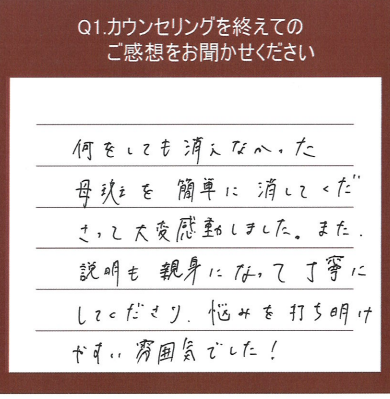 Q1.カウンセリングを終えての
ご感想をお聞かせください
何をしても消えなかった
母斑を簡単に消してくだ
さって大変感動しました。また、
説明も親身になって丁寧に
してくださり、悩みを打ち明け
やすい雰囲気でした!